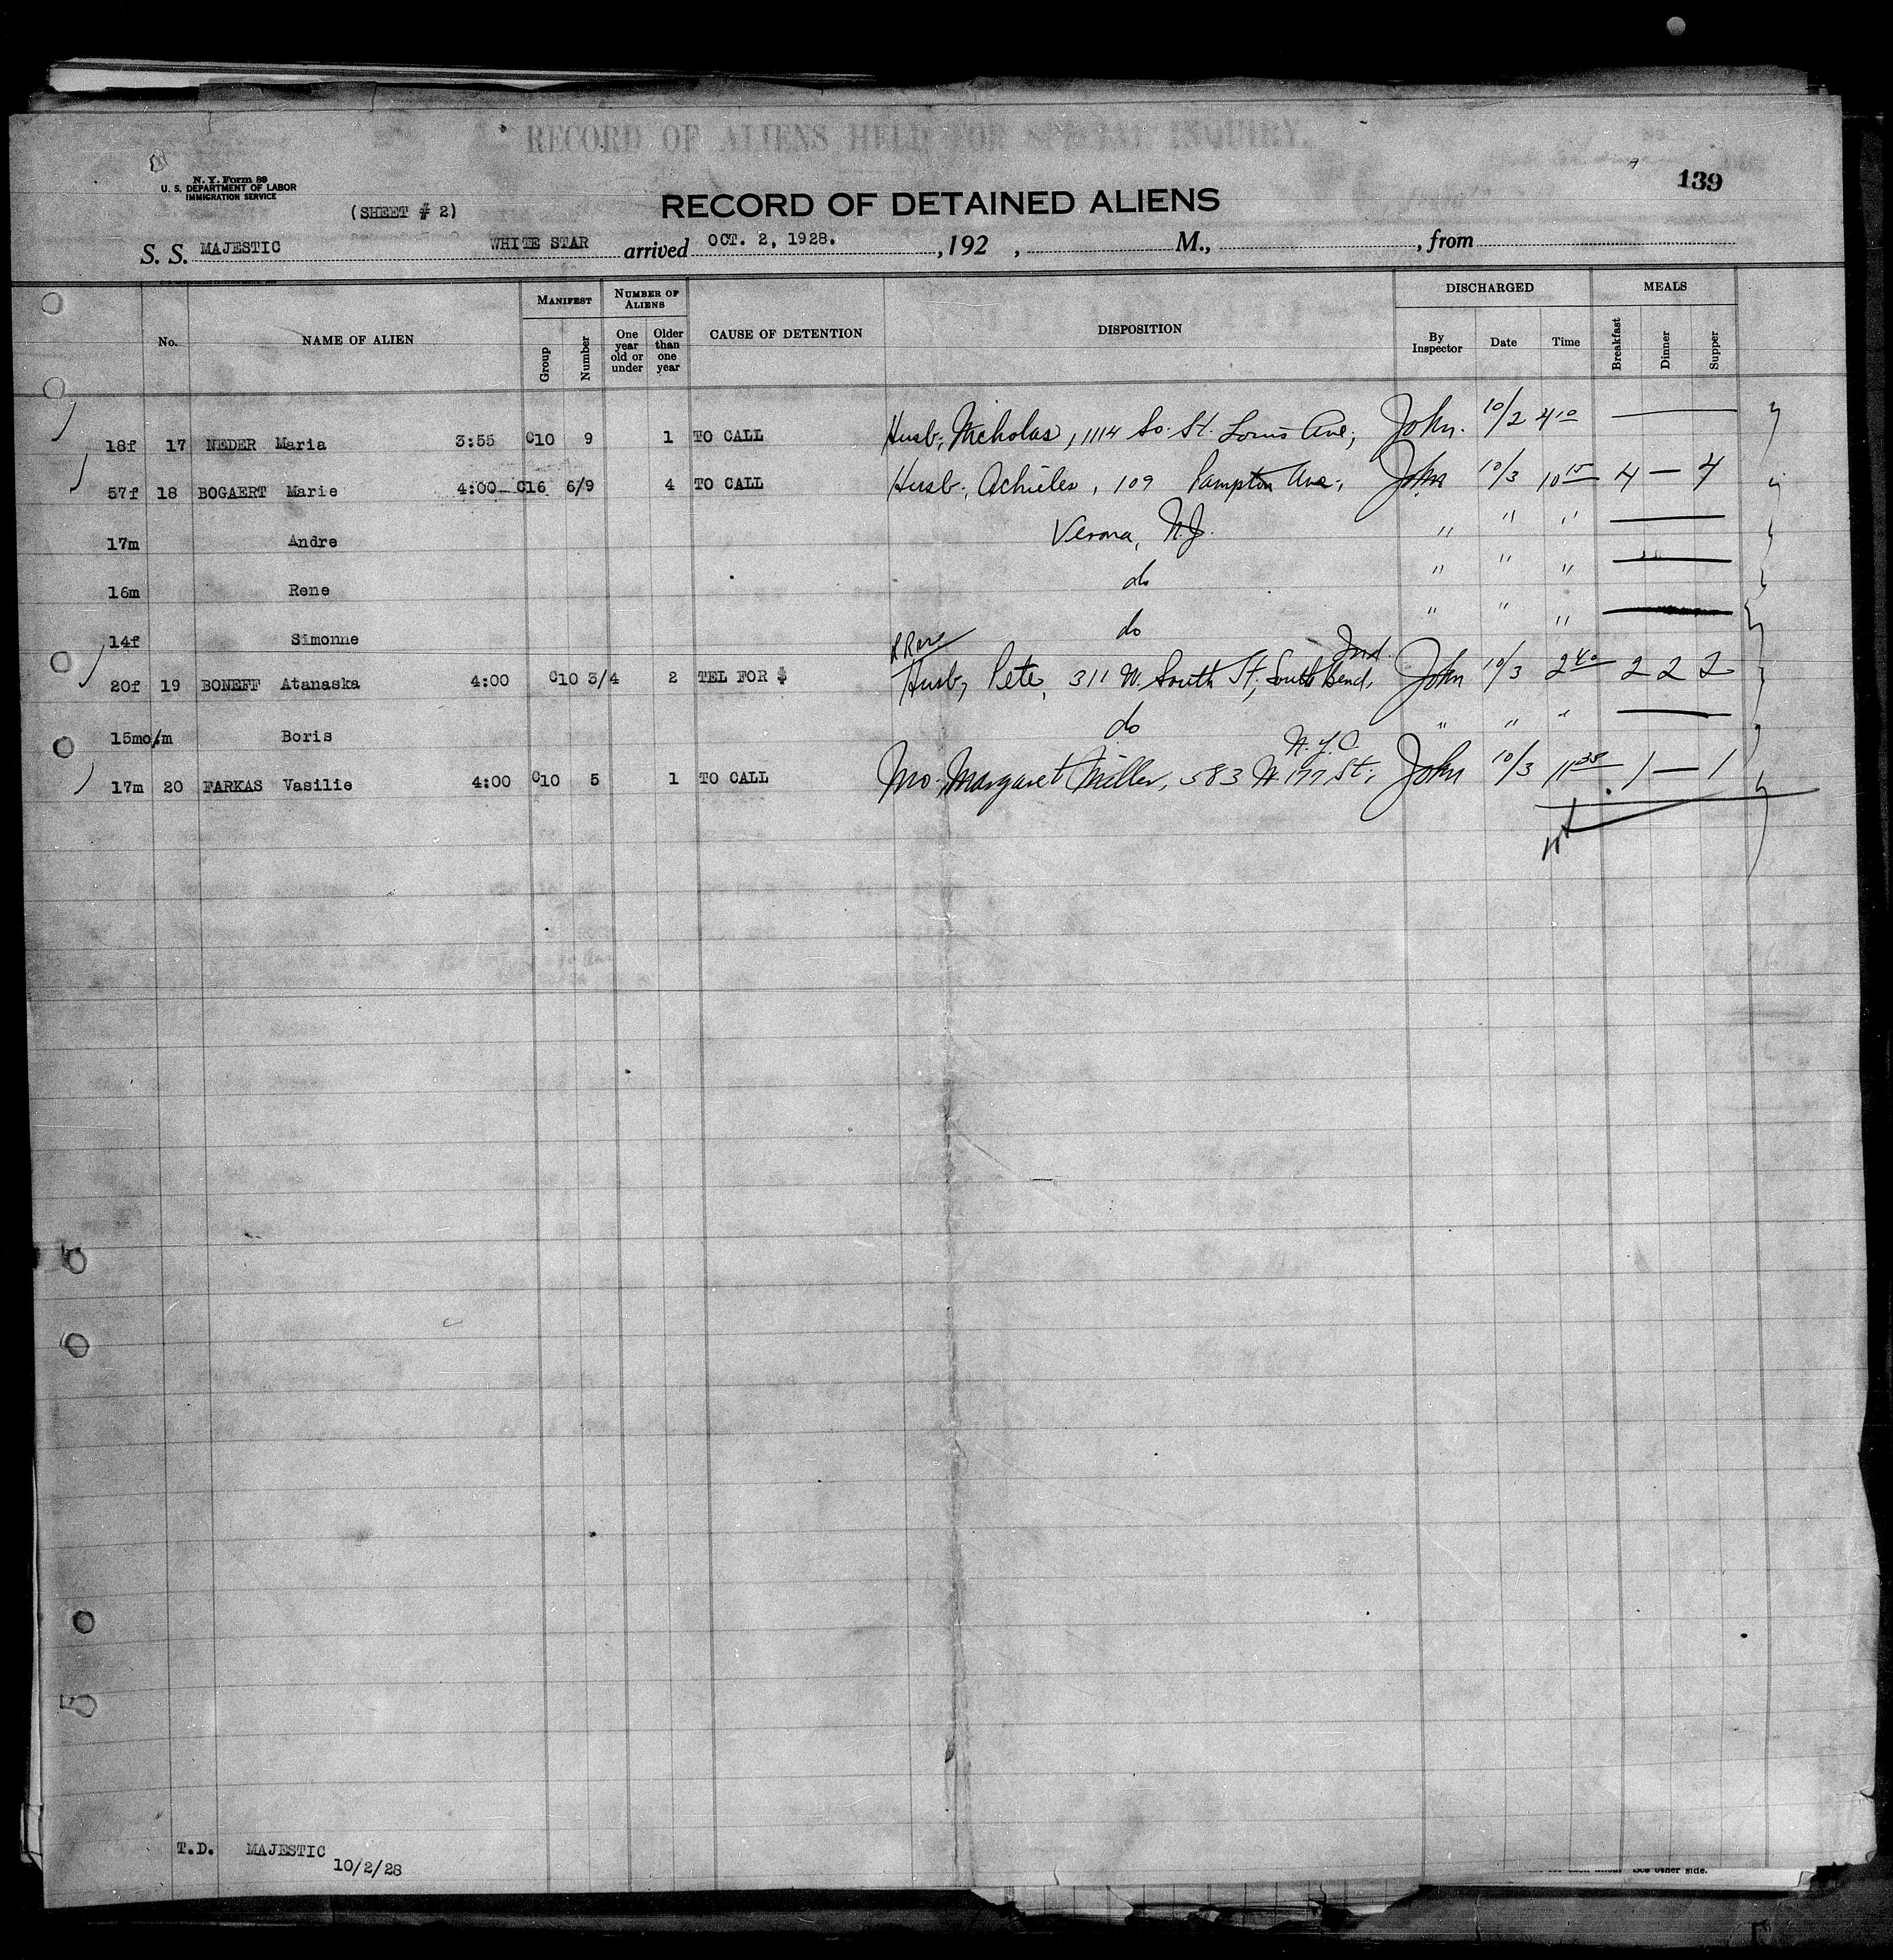 RECORD OF ALIENS HELD FOR SPECIAL INQUIRY.
N. Y. Form 89
U. S. DEPARTMENT OF LABOR
IMMIGRATION SERVICE
139
(SHEET # 2)
RECORD OF DETAINED ALIENS
S. S. MAJESTIC WHITE STAR arrived OCT. 2, 1928. , 192 , M., , from
No. NAME OF ALIEN MANIFEST Group Number NUMBER OF ALIENS One year old or under Older than one year CAUSE OF DETENTION DISPOSITION DISCHARGED By Inspector Date Time MEALS Breakfast Dinner Supper
18f 17 NEDER Maria 3:55 C10 9 1 TO CALL Husb, Nicholas, 1114 So. St. Louis Ave; John. 10/2 4 10 —
57f 18 BOGAERT Marie 4:00 C16 6/9 4 TO CALL Husb, Achiles, 109 Pampton Ave; John 10/3 10 15 4 — 4
17m Andre Verona, N.J. " " " —
16m Rene do " " " —
14f Simonne do " " " —
20f 19 BONEFF Atanaska 4:00 C10 3/4 2 TEL FOR $ Husb, Pete, 311 W. South St, South Bend, Ind. John 10/3 2 40 2 2 2
15mo/m Boris do " " " —
17m 20 FARKAS Vasilie 4:00 C10 5 1 TO CALL Mo. Margaret Miller, 583 W 177 St, N.Y.C. John 10/3 11 35 1 — 1
T.D. MAJESTIC
10/2/28
See other side.